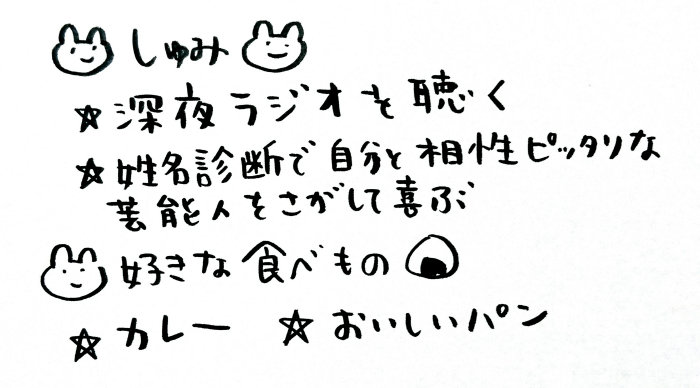 しゅみ
☆深夜ラジオを聴く
☆姓名診断で自分と相性ピッタリな
芸能人をさがして喜ぶ
好きな食べもの
☆カレー ☆おいしいパン